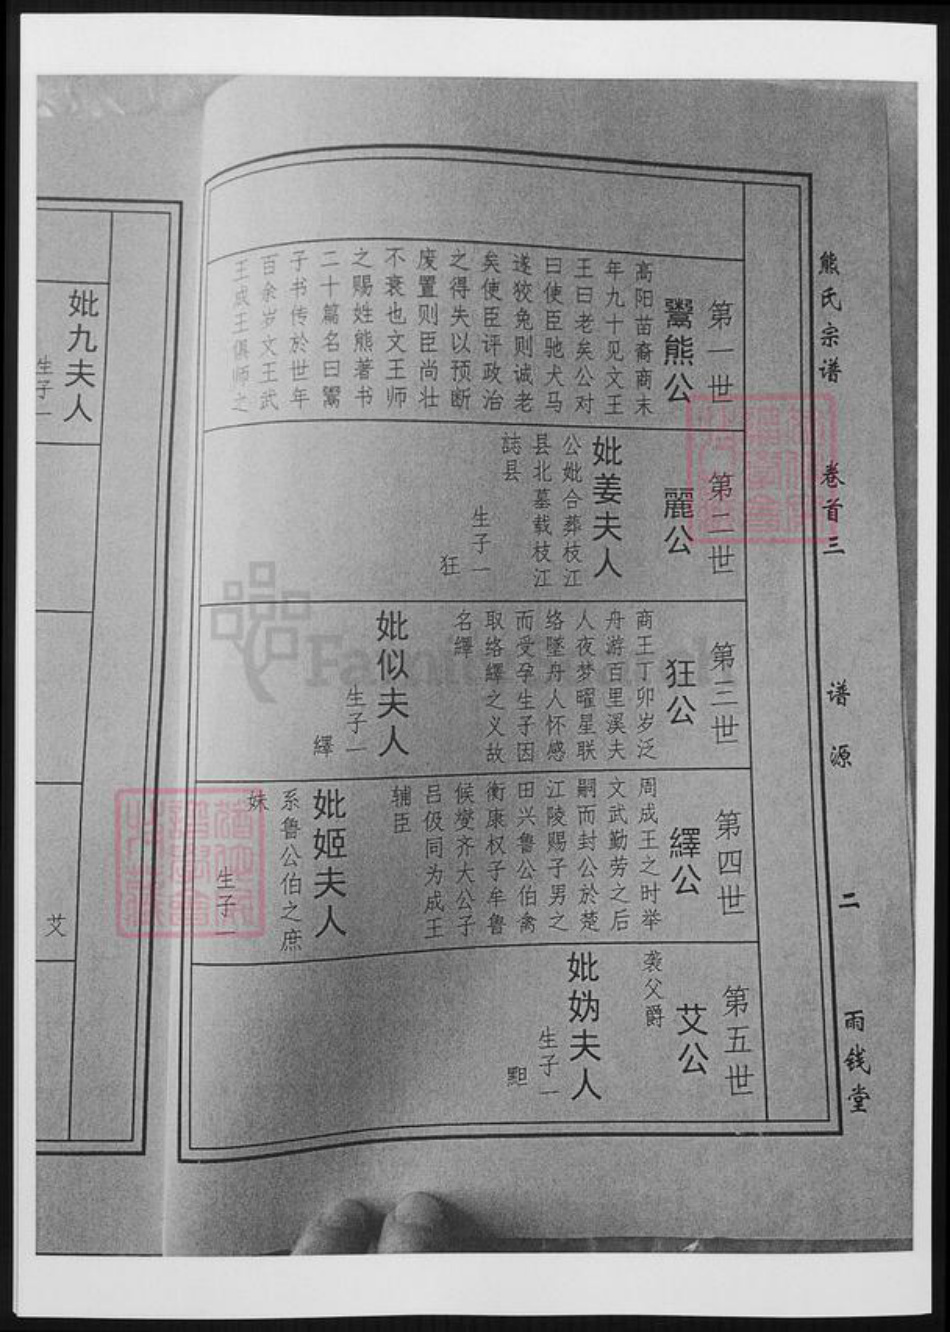 熊氏宗谱
卷首三
谱源
二
雨钱堂
第一世
鬻熊公
高阳苗裔商末
年九十见文王
王曰老矣公对
曰使臣驰犬马
逐狡兔则诚老
矣使臣评政治
之得失以预断
废置则臣尚壮
不衰也文王师
之赐姓熊著书
二十篇名曰鬻
子书传於世年
百余岁文王武
王成王俱师之
第二世
麗公
妣姜夫人
公妣合葬枝江
县北墓载枝江
誌县
生子一
狂
第三世
狂公
商王丁卯岁泛
舟游百里溪夫
人夜梦曜星联
络墜舟人怀感
而受孕生子因
取络繹之义故
名繹
妣似夫人
生子一
繹
第四世
繹公
周成王之时举
文武勤劳之后
嗣而封公於楚
江陵赐子男之
田兴鲁公伯禽
衡康权子牟鲁
候燮齐大公子
吕伋同为成王
辅臣
妣姬夫人
系鲁公伯之庶
妹
生子一
第五世
艾公
袭父爵
妣妫夫人
生子一
黑旦
妣九夫人
生子一
艾
FamilySearch